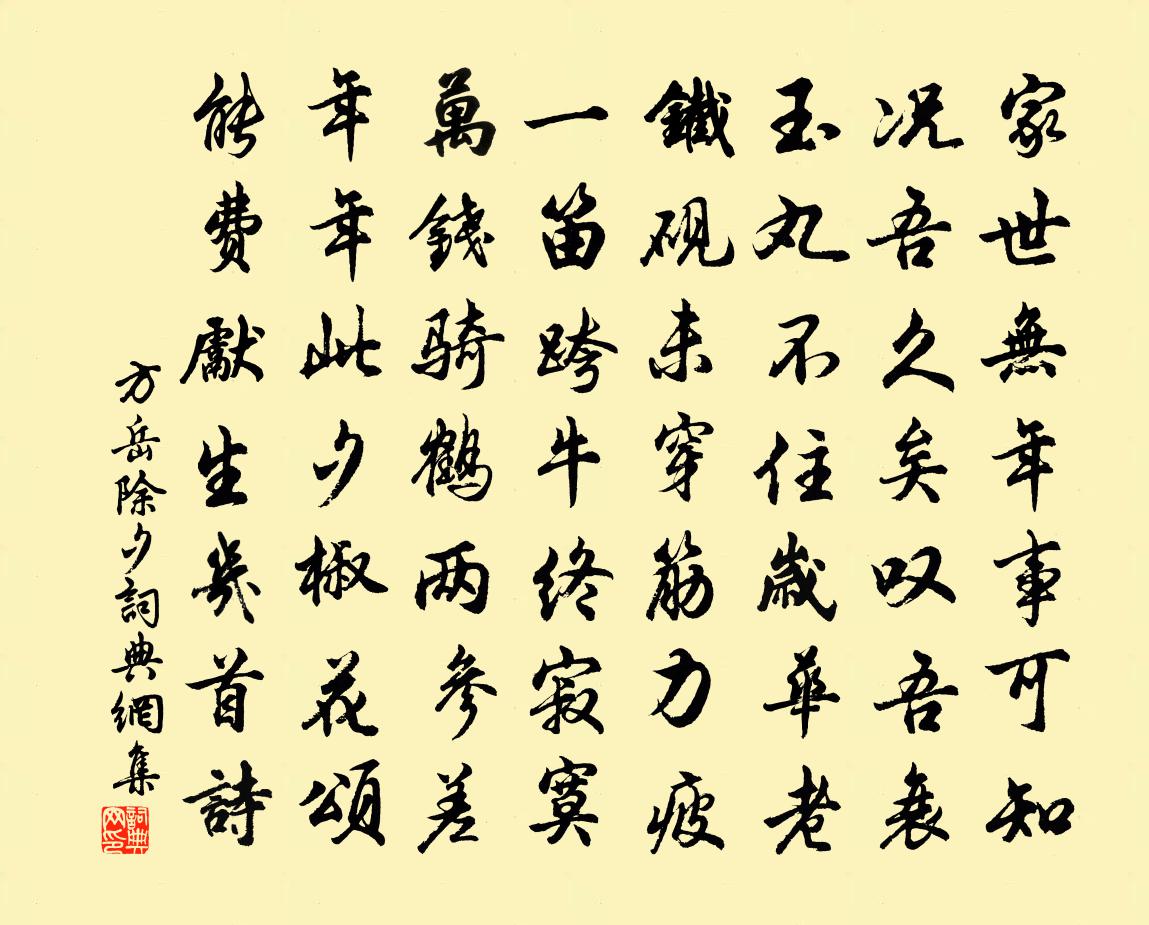 家世無年事可知
况吾久矣叹吾衰
玉丸不住歲華老
鐵硯未穿筋力疲
一笛跨牛终寂寞
萬錢骑鹤两參差
年年此夕椒花頌
能費獻生幾首詩
方岳除夕詞典網集
詞典网印